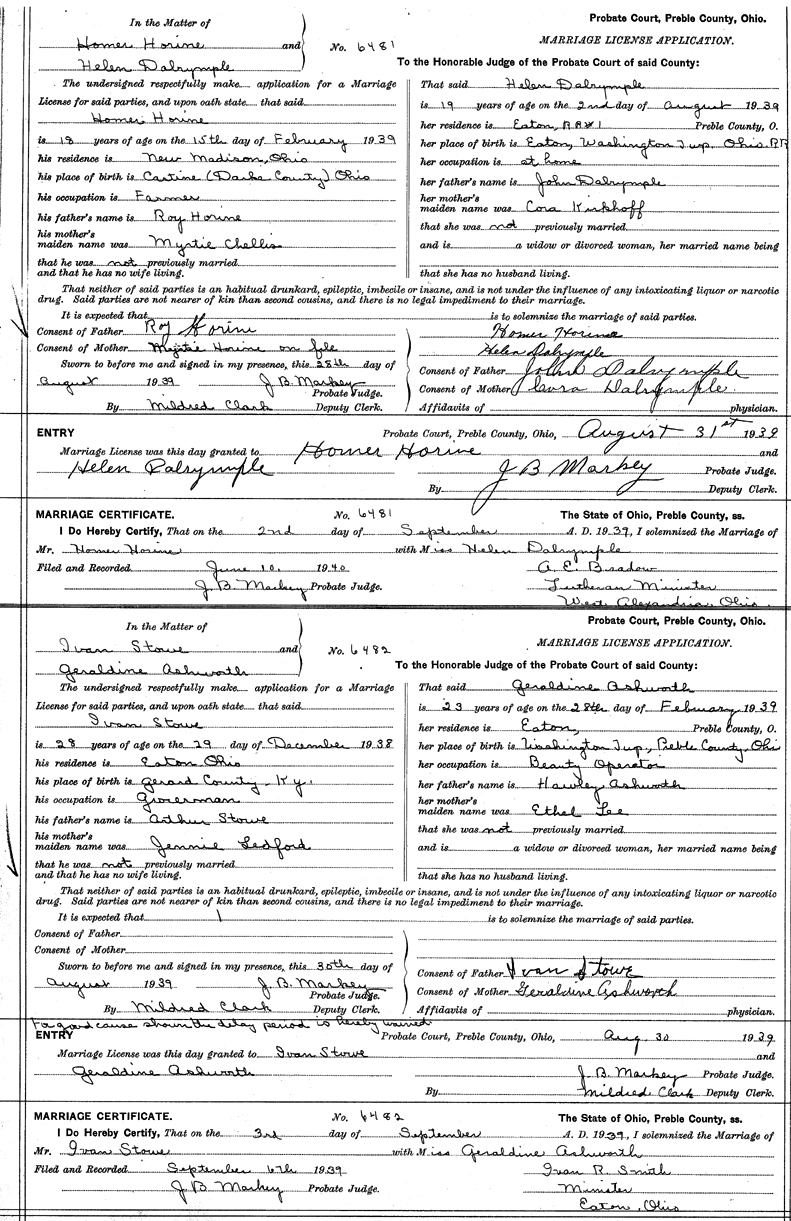 In the Matter of
Homer Horine and
Helen Dalrymple
No. 6481
Probate Court, Preble County, Ohio.
MARRIAGE LICENSE APPLICATION.
To the Honorable Judge of the Probate Court of said County:
The undersigned respectfully make application for a Marriage
License for said parties, and upon oath state that said
Homer Horine
is 18 years of age on the 15th day of February 1939
his residence is New Madison, Ohio
his place of birth is Castine (Darke County) Ohio
his occupation is Farmer
his father's name is Roy Horine
his mother's
maiden name was Myrtie Chellis
that he was not previously married
and that he has no wife living.
That said Helen Dalrymple
is 19 years of age on the 2nd day of August 1939
her residence is Eaton, RR#1 Preble County, O.
her place of birth is Eaton, Washington Twp. Ohio. RR
her occupation is at home
her father's name is John Dalrymple
her mother's
maiden name was Cora Kirkhoff
that she was not previously married.
and is a widow or divorced woman, her married name being
that she has no husband living.
That neither of said parties is an habitual drunkard, epileptic, imbecile or insane, and is not under the influence of any intoxicating liquor or narcotic
drug. Said parties are not nearer of kin than second cousins, and there is no legal impediment to their marriage.
It is expected that is to solemnize the marriage of said parties.
Consent of Father Roy Horine
Consent of Mother Myrtie Horine on file
Sworn to before me and signed in my presence, this 28th day of
August 1939 J. B. Markey
Probate Judge.
By Mildred Clark Deputy Clerk.
Homer Horine
Helen Dalrymple
Consent of Father John Dalrymple
Consent of Mother Cora Dalrymple.
Affidavits of physician.
ENTRY Probate Court, Preble County, Ohio, August 31st 1939
Marriage License was this day granted to Homer Horine and
Helen Dalrymple J B Markey Probate Judge.
By Deputy Clerk.
MARRIAGE CERTIFICATE. No. 6481 The State of Ohio, Preble County, ss.
I Do Hereby Certify, That on the 2nd day of September A. D. 1939, I solemnized the Marriage of
Mr. Homer Horine with Miss Helen Dalrymple
Filed and Recorded June 10, 1940 A. E. Bradow
J. B. Markey Probate Judge. Lutheran Minister
West Alexandria, Ohio.
In the Matter of
Ivan Stowe and
Geraldine Ashworth
No. 6482
Probate Court, Preble County, Ohio.
MARRIAGE LICENSE APPLICATION.
To the Honorable Judge of the Probate Court of said County:
The undersigned respectfully make application for a Marriage
License for said parties, and upon oath state that said
Ivan Stowe
is 28 years of age on the 29 day of December 1938
his residence is Eaton Ohio
his place of birth is Gerard County - Ky.
his occupation is
his father's name is Arthur Stowe
his mother's
maiden name was Jennie Ledford
that he was not previously married
and that he has no wife living.
That said Geraldine Ashworth
is 23 years of age on the 28th day of February 1939
her residence is Eaton, Preble County, O.
her place of birth is Washington Twp., Preble County, Ohio
her occupation is Beauty Operator
her father's name is Hawley Ashworth
her mother's
maiden name was Ethel Lee
that she was not previously married
and is a widow or divorced woman, her married name being
that she has no husband living.
That neither of said parties is an habitual drunkard, epileptic, imbecile or insane, and is not under the influence of any intoxicating liquor or narcotic
drug. Said parties are not nearer of kin than second cousins, and there is no legal impediment to their marriage.
It is expected that is to solemnize the marriage of said parties.
Consent of Father
Consent of Mother
Sworn to before me and signed in my presence, this 30th day of
August 1939 J. B. Markey
Probate Judge.
By Mildred Clark Deputy Clerk.
Consent of Father Ivan Stowe
Consent of Mother Geraldine Ashworth
Affidavits of physician.
For good cause shown the delay period is hereby waived
ENTRY Probate Court, Preble County, Ohio, Aug. 30 1939
Marriage License was this day granted to Ivan Stowe and
Geraldine Ashworth J. B. Markey Probate Judge.
By Mildred Clark Deputy Clerk.
MARRIAGE CERTIFICATE. No. 6482 The State of Ohio, Preble County, ss.
I Do Hereby Certify, That on the 3rd day of September A. D. 1939, I solemnized the Marriage of
Mr. Ivan Stowe with Miss Geraldine Ashworth
Filed and Recorded September 6th 1939 Ivan R. Smith
J. B. Markey Probate Judge. Minister
Eaton, Ohio